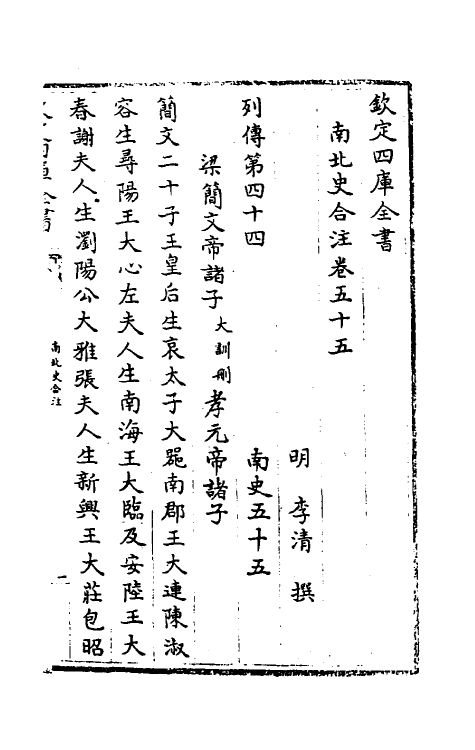 欽定四庫全書
南北史合注卷五十五
明 李清 撰
列傳第四十四 南史五十五
梁簡文帝諸子 大訓刪 孝元帝諸子
簡文二十子王皇后生哀太子大器南郡王大連陳淑
容生尋陽王大心左夫人生南海王大臨及安陸王大
春謝夫人生瀏陽公大雅張夫人生新興王大莊包昭
南北史合注
一